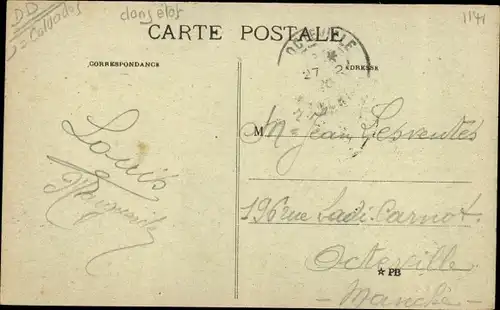 DD
= Calvados
dans elor
1141
CARTE POSTALE
CORRESPONDANCE
ADRESSE
OCTEVILLE
27 2
Louis
M Mr Jean Desventes
196 rue Sadi Carnot
Octeville
★ PB
- Manche -